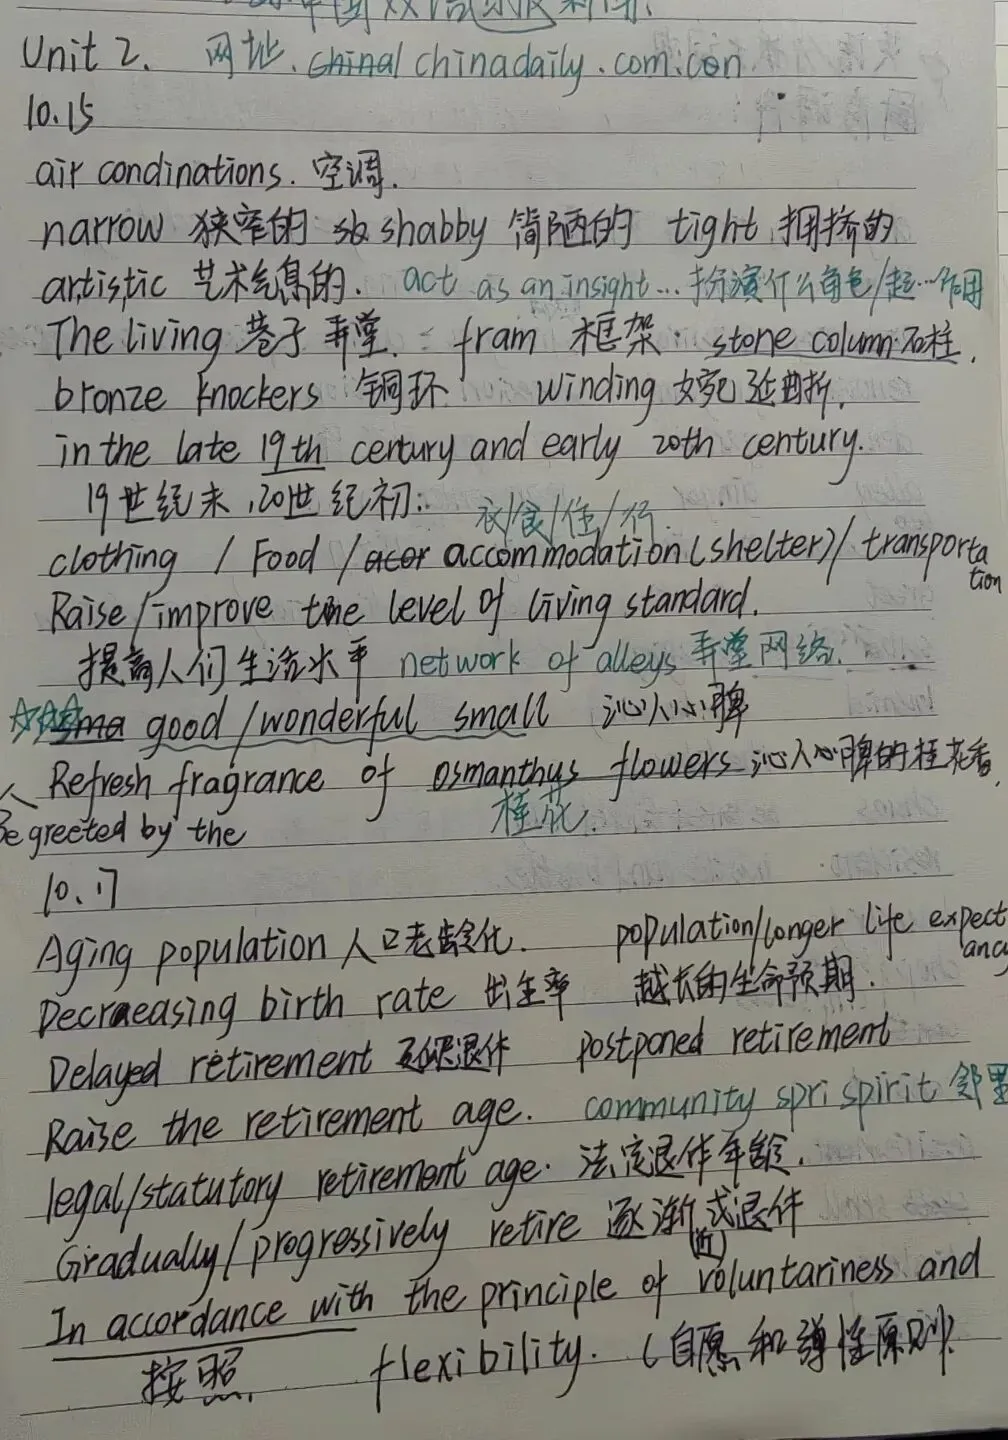 中国双语
Unit 2. 网址. chinal chinadaily.com.con
10.15
air condinations. 空调.
narrow 狭窄的 sb shabby 简陋的 tight 拥挤的
artistic 艺术气息的. act as an insight... 扮演什么角色/起…作用
The living 巷子 弄堂. fram 框架. stone column 石柱.
bronze knockers 铜环 winding 蜿延曲折.
in the late 19th century and early 20th century.
19世纪末, 20世纪初:
衣/食/住/行.
clothing / Food / acor accommodation (shelter) / transportation
Raise/improve the level of living standard.
提高人们生活水平 network of alleys 弄堂网络.
sma good/wonderful small 沁人心脾
Refresh fragrance of osmanthys flowers 沁人心脾的桂花香.
桂花.
Be greeted by the
10.17
Aging population 人口老龄化. population/longer life expectancy
Decraeasing birth rate 出生率 越长的生命预期.
Delayed retirement 延迟退休 postponed retirement
Raise the retirement age. community spri spirit 邻里
legal/statutory retirement age. 法定退休年龄.
Gradually/progressively retire 逐渐式退休
(近)
In accordance with the principle of voluntariness and
按照 flexibility. (自愿和弹性原则).